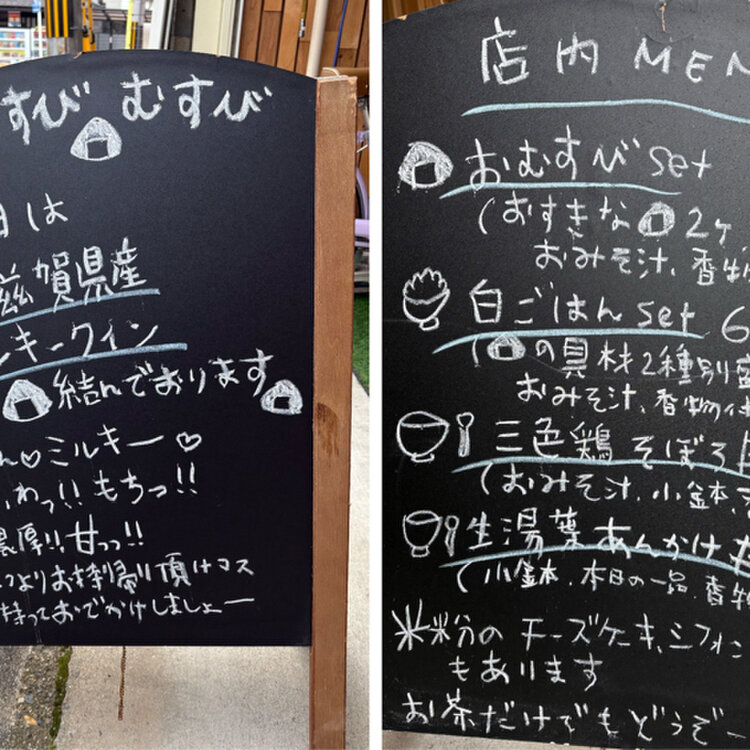 すび むすび
日は
滋賀県産
ルキークイン
結んでおります
ん♡ミルキー♡
わっ!! もちっ!!
濃厚!! 甘っっ!!
よりお持ち帰り頂けマス
持っておでかけしましょー
店内 MEN
おむすび set
(おすきな 2ヶ
おみそ汁、香物
白ごはん set 6
(の具材2種別盛
おみそ汁、香物付
三色鶏そぼろ
(おみそ汁、小鉢、
生湯葉あんかけ
(小鉢、本日の一品、香物
米粉の チーズケーキ、シフォン
もあります
お茶だけでもどうぞー